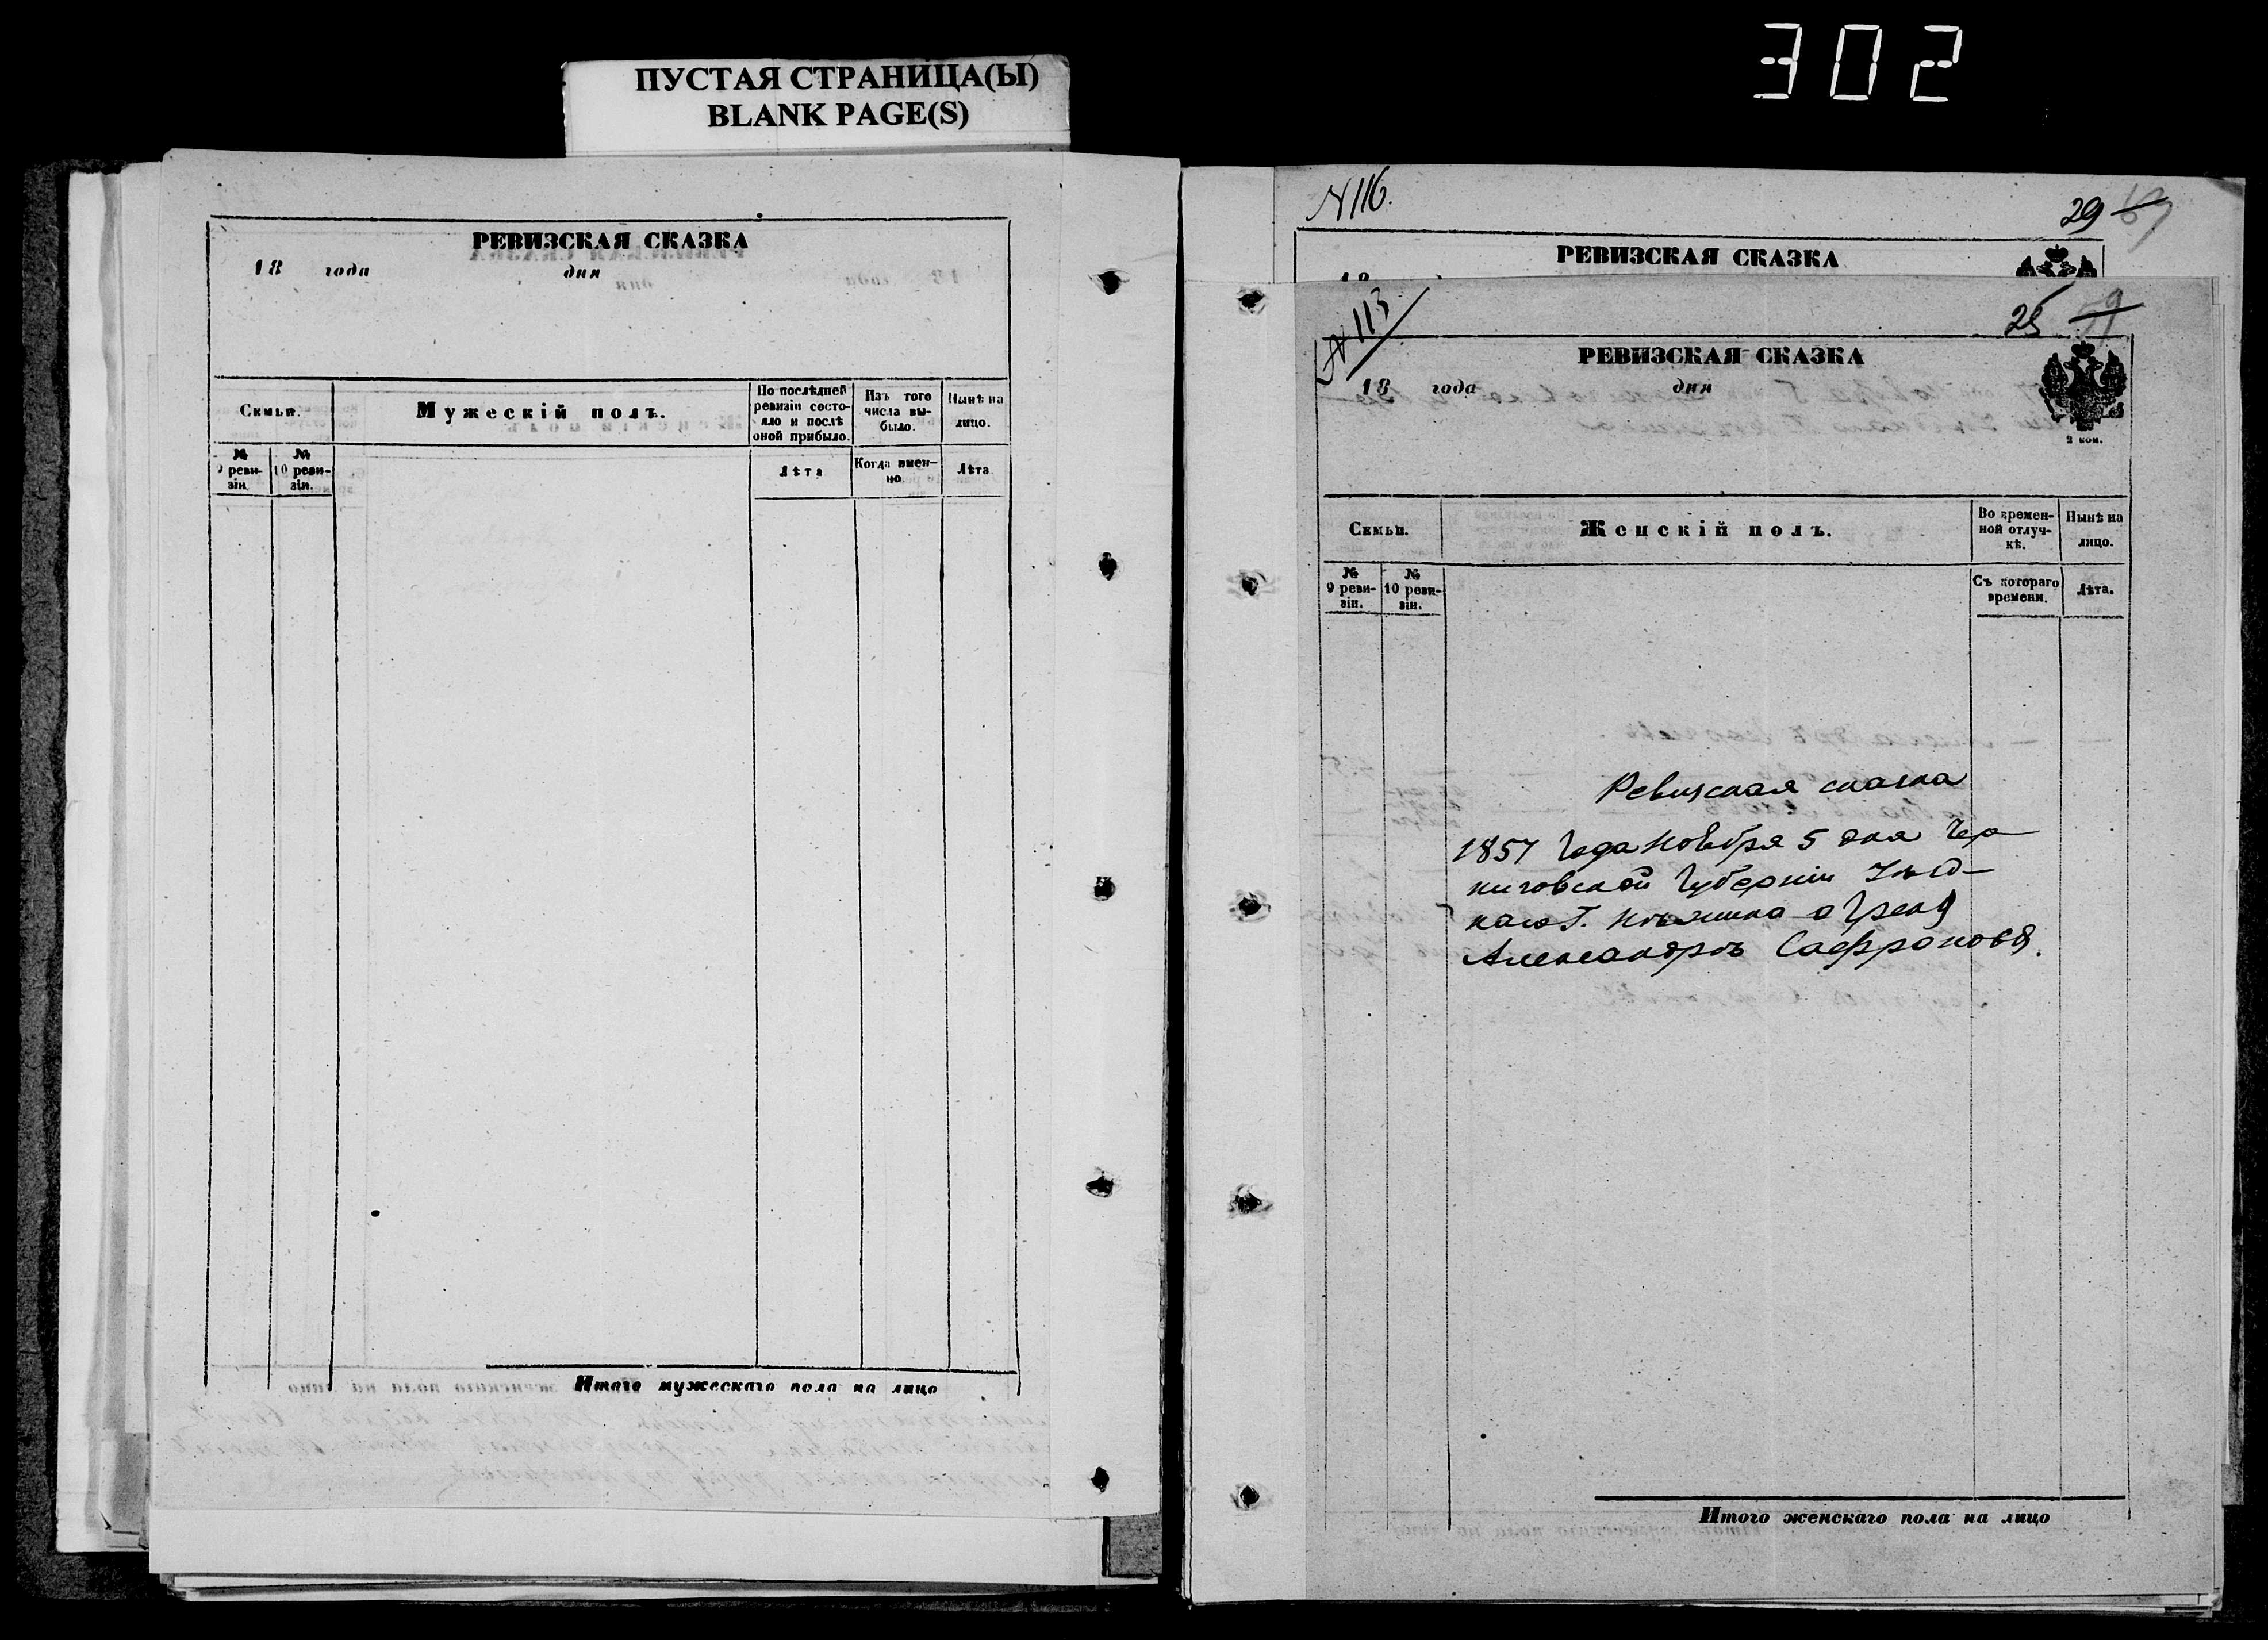 302
ПУСТАЯ СТРАНИЦА(Ы)
BLANK PAGE(S)
РЕВИЗСКАЯ СКАЗКА
18 года дня
Семьи.
Мужескій полъ.
По послѣдней ревизіи состояло и послѣ оной прибыло.
Изъ того числа выбыло.
Нынѣ на лицо.
№ 9 ревизіи.
№ 10 ревизіи.
Лѣта
Когда именно
Лѣта
Итого мужескаго пола на лицо
N 116.
29
РЕВИЗСКАЯ СКАЗКА
N 113
25
РЕВИЗСКАЯ СКАЗКА
18 года дня
2 коп.
Семьи.
Женскій полъ.
Во временной отлучкѣ.
Нынѣ на лицо.
№ 9 ревизіи.
№ 10 ревизіи.
Съ котораго времени.
Лѣта.
Ревизская сказка
1857 Года Ноября 5 дня Чер
ниговской Губерніи
Александрѣ Сафроновѣ.
Итого женскаго пола на лицо